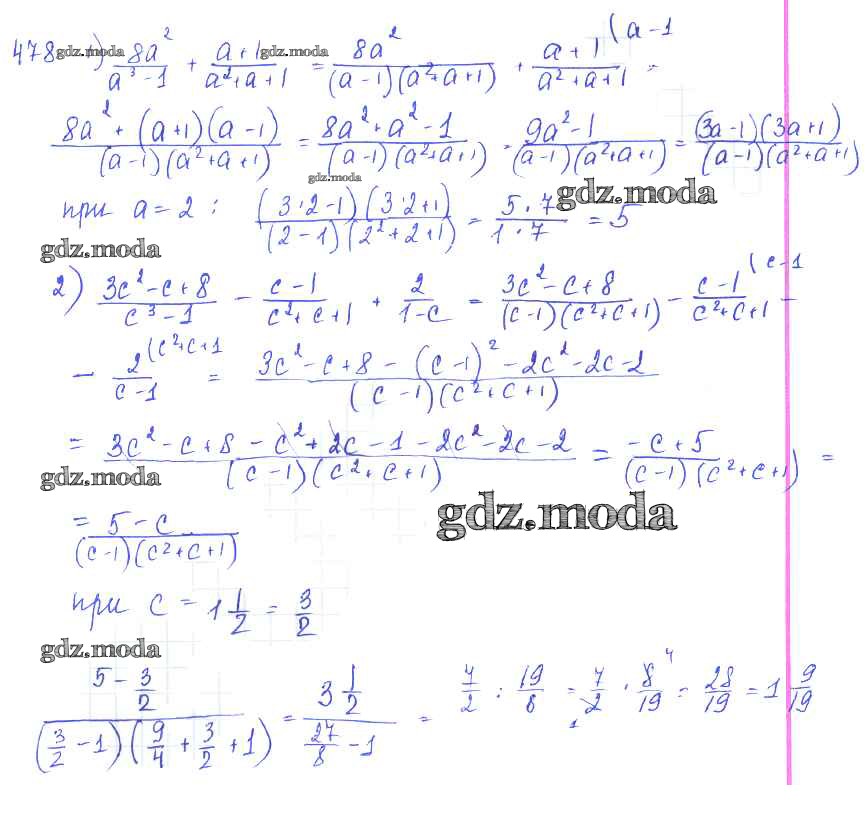 478 gdz.moda 1) 8a²/(a³-1) + (a+1)/(a²+a+1) gdz.moda = 8a²/((a-1)(a²+a+1)) + (a+1)/(a²+a+1) (a-1 =
(8a²+(a+1)(a-1))/((a-1)(a²+a+1)) = (8a²+a²-1)/((a-1)(a²+a+1)) = (9a²-1)/((a-1)(a²+a+1)) = ((3a-1)(3a+1))/((a-1)(a²+a+1))
gdz.moda
при a=2 : ((3·2-1)(3·2+1))/((2-1)(2²+2+1)) = (5·7)/(1·7) = 5 gdz.moda
gdz.moda
2) (3c²-c+8)/(c³-1) - (c-1)/(c²+c+1) + 2/(1-c) = (3c²-c+8)/((c-1)(c²+c+1)) - (c-1)/(c²+c+1) (c-1 -
- 2/(c-1) (c²+c+1 = (3c²-c+8-(c-1)²-2c²-2c-2)/((c-1)(c²+c+1))
= (3c²-c+8-c²+2c-1-2c²-2c-2)/((c-1)(c²+c+1)) = (-c+5)/((c-1)(c²+c+1)) =
gdz.moda
gdz.moda
= (5-c)/((c-1)(c²+c+1))
при c = 1 1/2 = 3/2
gdz.moda
(5 - 3/2)/((3/2 - 1)(9/4 + 3/2 + 1)) = (3 1/2)/(27/8 - 1) = 7/2 : 19/8 = 7/2 · 8/19 = 28/19 = 1 9/19